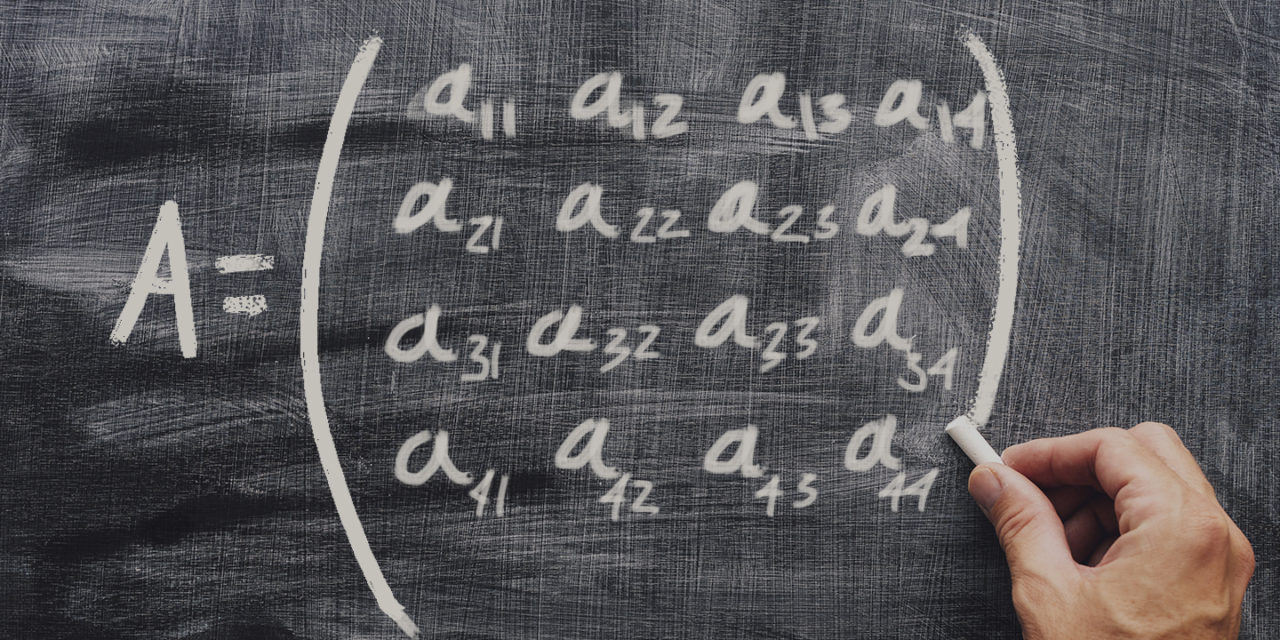 A = ( a₁₁ a₁₂ a₁₃ a₁₄ )
a₂₁ a₂₂ a₂₃ a₂₄
a₃₁ a₃₂ a₃₃ a₃₄
a₄₁ a₄₂ a₄₃ a₄₄